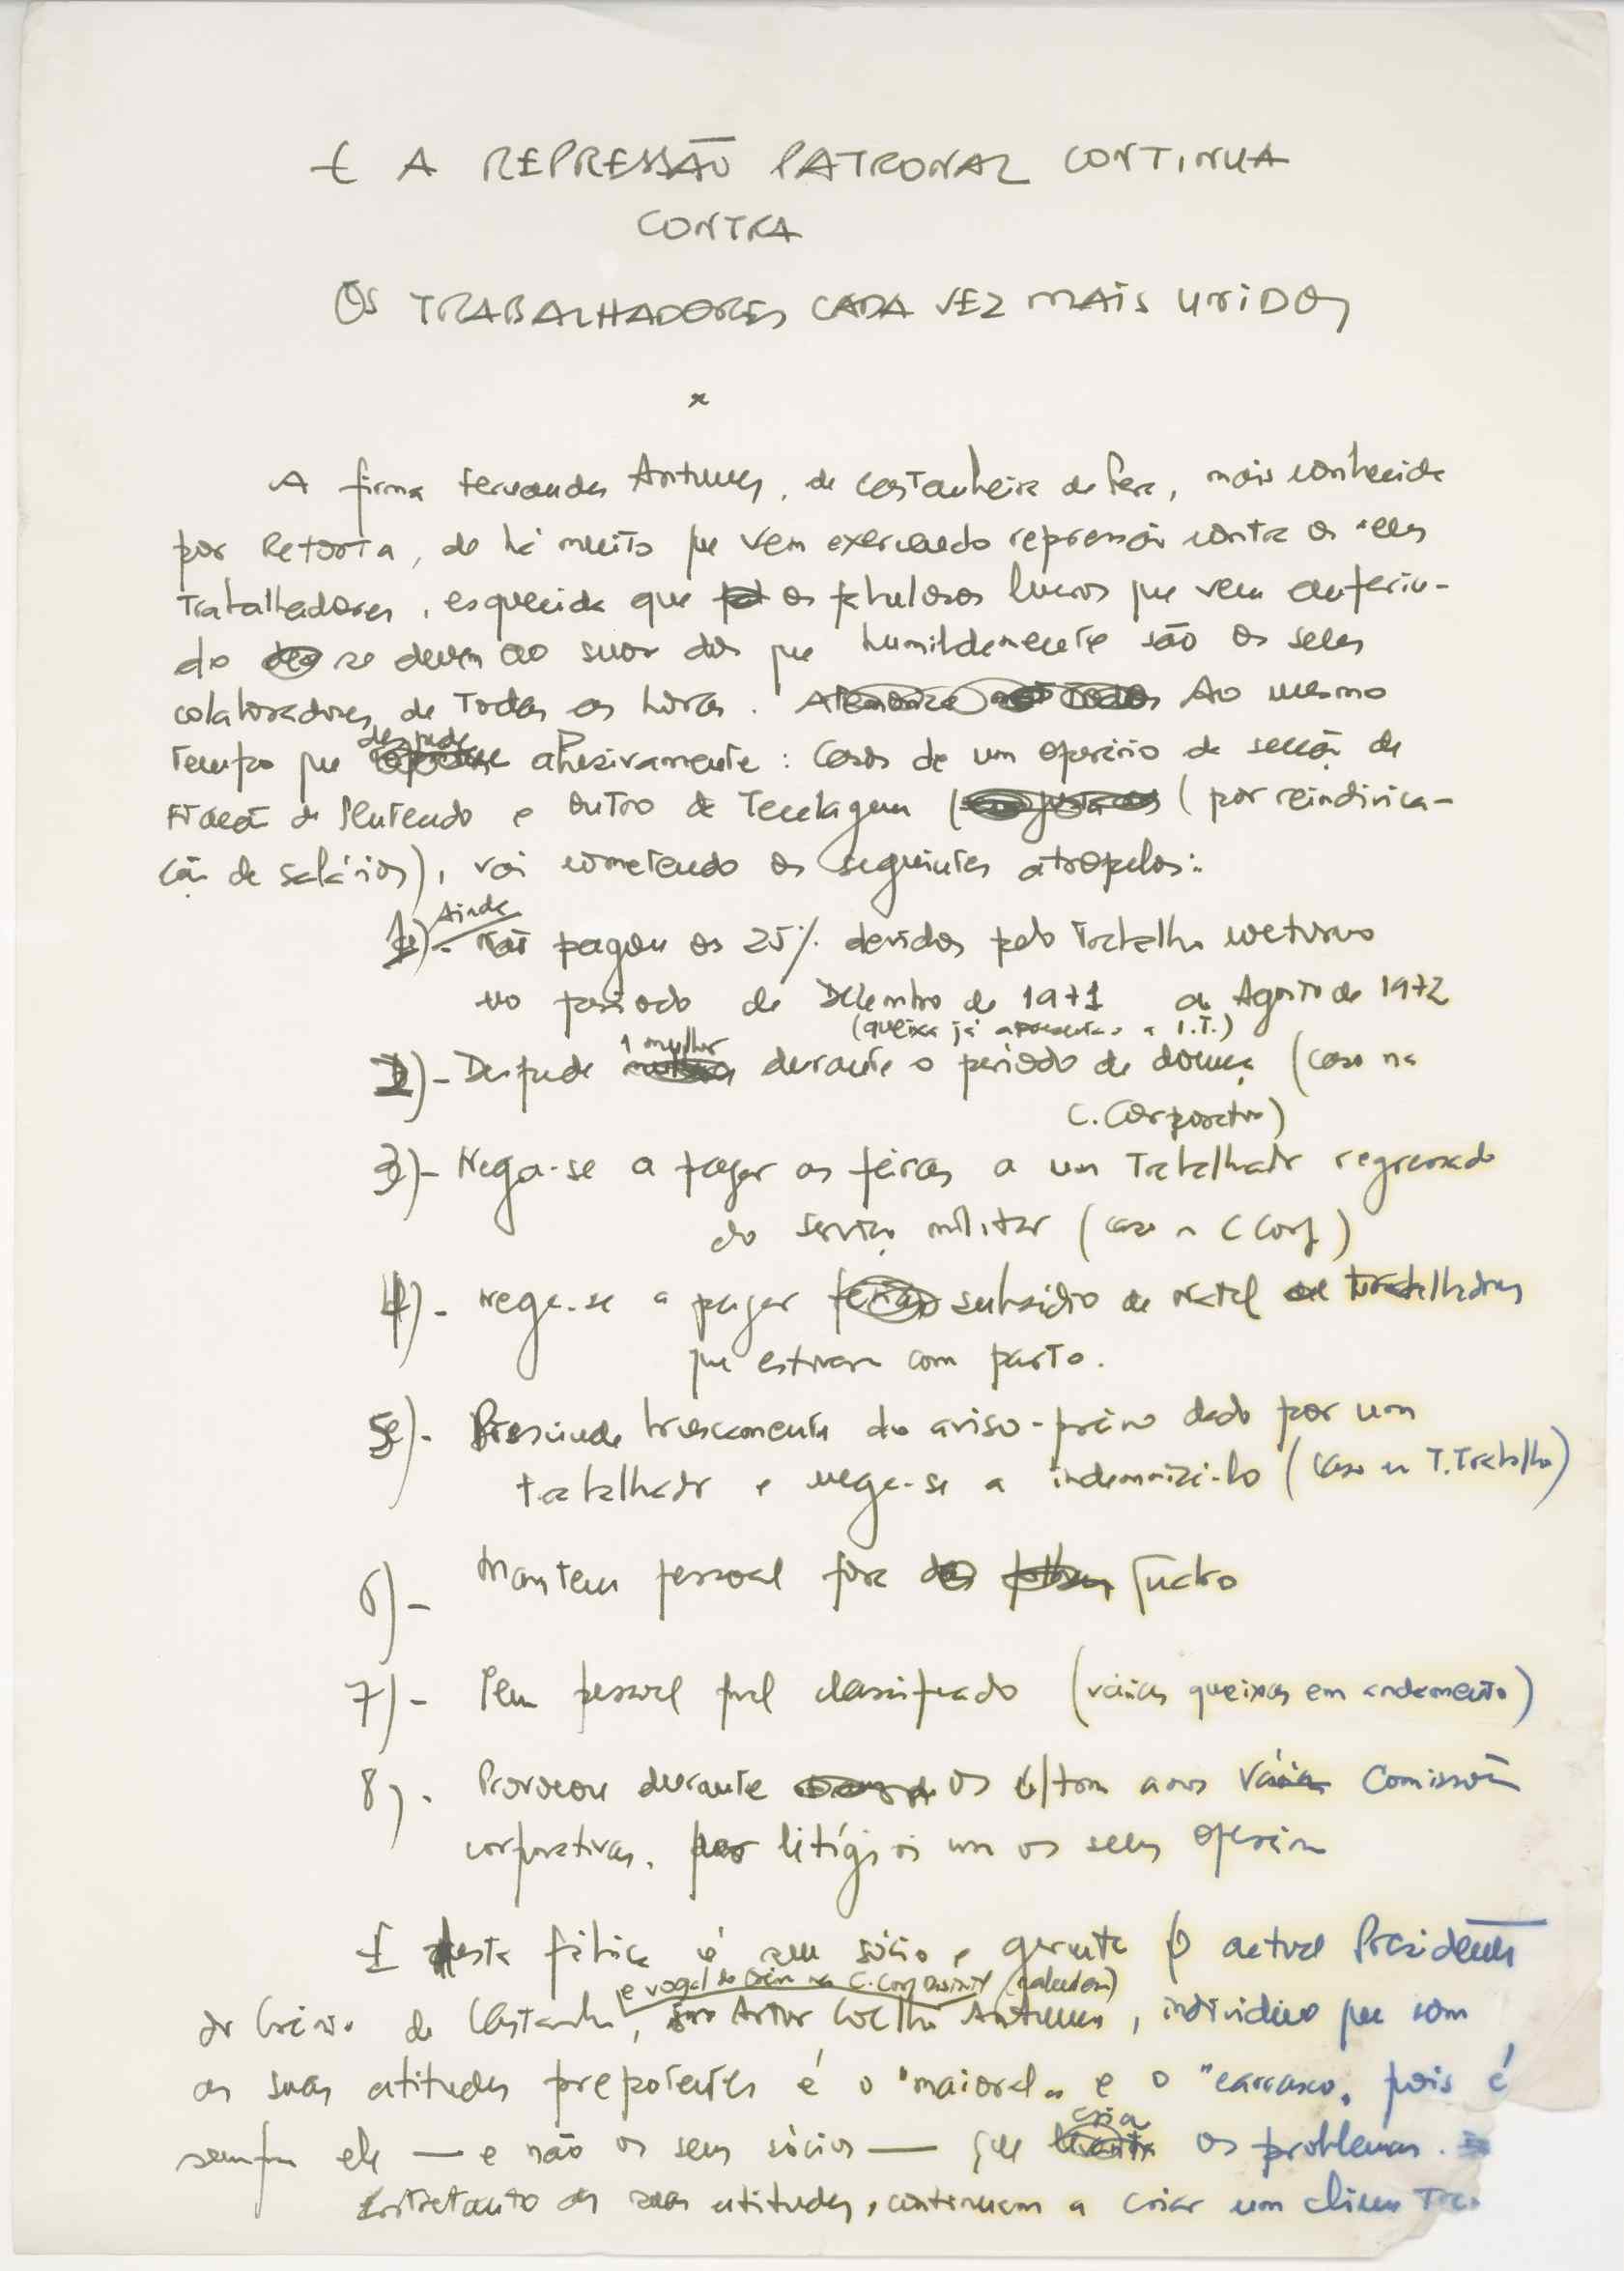 E A REPRESSÃO PATRONAL CONTINUA
CONTRA
OS TRABALHADORES CADA VEZ MAIS UNIDOS
x
A firma Fernandes Antunes, de Castanheira de Pera, mais conhecida
por Retorta, de há muito que vem exercendo repressão contra os seus
trabalhadores, esquecida que os fabulosos lucros que vem auferin-
do se devem ao suor dos que humildemente são os seus
colaboradores de todas as horas. Ao mesmo
tempo que despede abusivamente: Casos de um operário de secção de
Fiação de Penteado e outro de Tecelagem (por reindivica-
ção de salários), vai cometendo os seguintes atropelos:
1)- Ainda não pagou os 25% devidos pelo trabalho nocturno
no período de Dezembro de 1971 a Agosto de 1972
(queixa já apresentada a I.T.)
2)- Despede 1 mulher durante o período de doença (caso na
C. Corporativa)
3)- Nega-se a pagar as férias a um trabalhador regressado
do serviço militar (caso na C Corp)
4)- nega-se a pagar subsídio de Natal trabalhadoras
que estiveram com parto.
5)- Prescinde bruscamente do aviso-prévio dado por um
trabalhador e nega-se a indemnizá-lo (caso no T. Trabalho)
6)- Mantem pessoal fora quadro
7)- Tem pessoal mal classificado (várias queixas em andamento)
8)- Provocou durante os últimos anos várias Comissões
corporativas, por litígios com os seus operários
E desta fábrica é seu sócio e gerente o actual Presidente
e vogal do Grémio na C. Corp
do Grémio de Castanheira, Artur Coelho Antunes, indivíduo que com
as suas atitudes prepotentes é o "maioral" e o "carrasco", pois é
sempre ele — e não os seus sócios — que cria os problemas.
Entretanto as suas atitudes, continuam a criar um clima